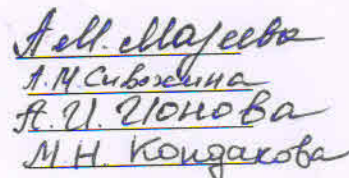 А.М. Мазеева
А.М. Сивохина
А.И. Ионова
М.Н. Кондакова